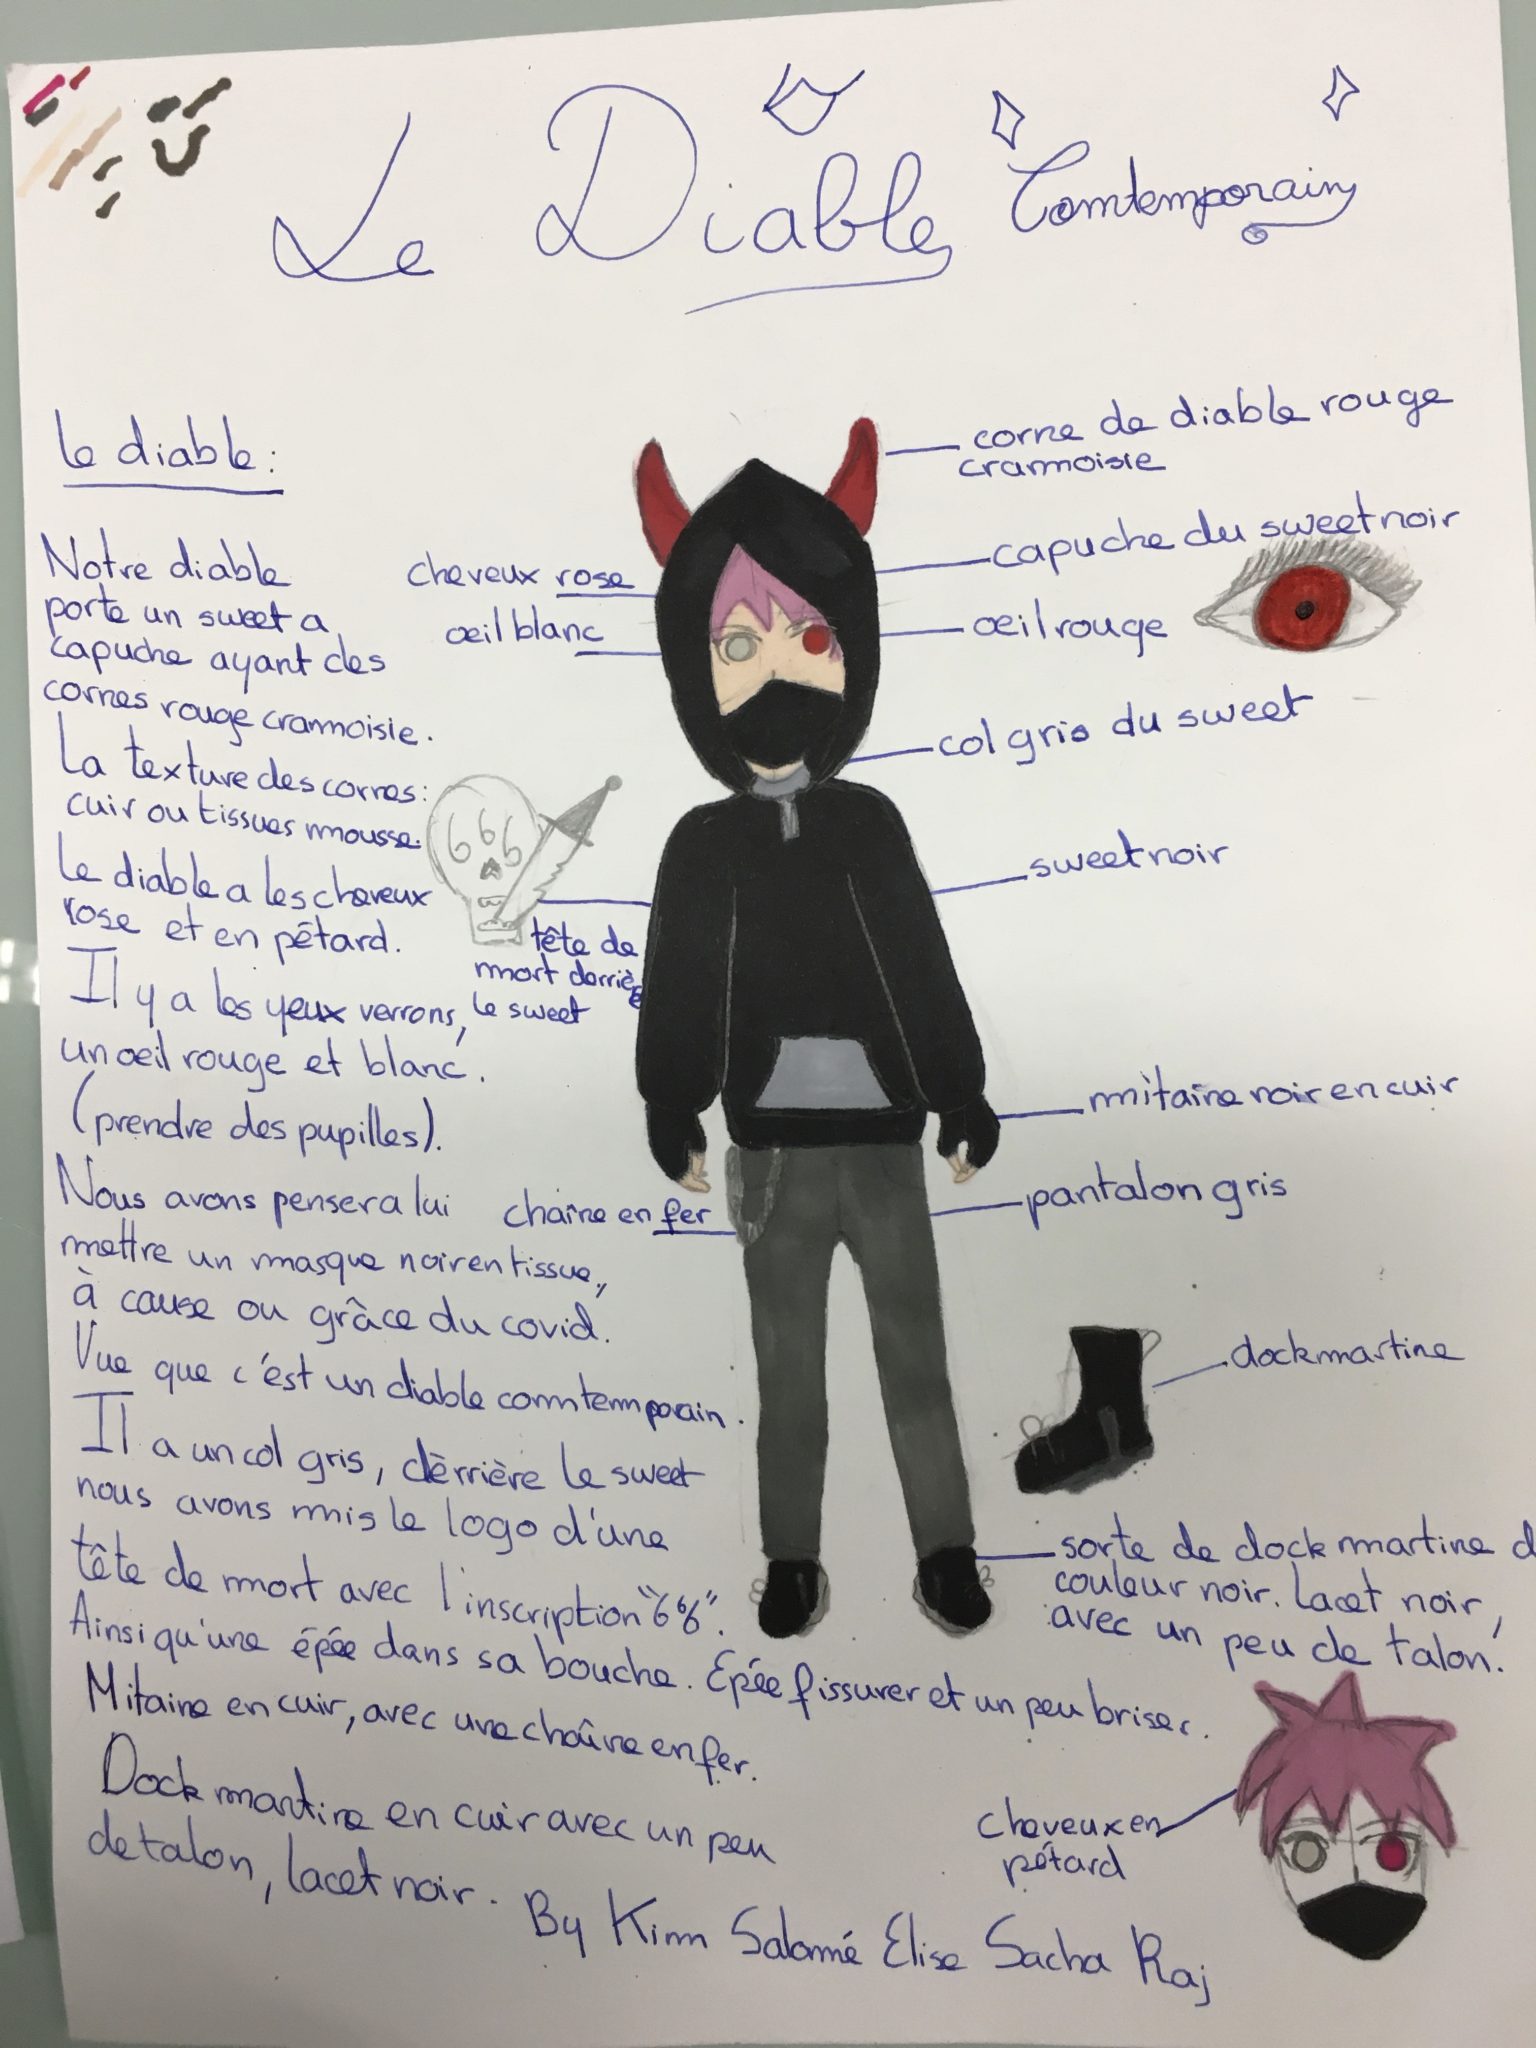 Le Diable Comtemporain
le diable:
Notre diable
porte un sweet a
capuche ayant des
cornes rouge cramoisie.
La texture des cornes:
cuir ou tissues mousse.
Le diable a les cheveux
rose et en pétard.
Il y a les yeux verrons,
un oeil rouge et blanc.
(prendre des pupilles).
Nous avons penser a lui
mettre un masque noir en tissue,
à cause ou grâce du covid.
Vue que c'est un diable comtemporain.
Il a un col gris, dèrrière le sweet
nous avons mis le logo d'une
tête de mort avec l'inscription "666".
Ainsi qu'une épée dans sa bouche. Epée fissurer et un peu briser.
Mitaine en cuir, avec une chaîne en fer.
Dock martine en cuir avec un peu
de talon, lacet noir.
By Kim Salomé Elise Sacha Raj
cheveux rose
œil blanc
666
tête de
mort derrière
le sweet
chaîne en fer
corne de diable rouge
cramoisie
capuche du sweet noir
œil rouge
col gris du sweet
sweet noir
mitaine noir en cuir
pantalon gris
dockmartine
sorte de dock martine d
couleur noir. lacet noir,
avec un peu de talon.
cheveux en
pétard